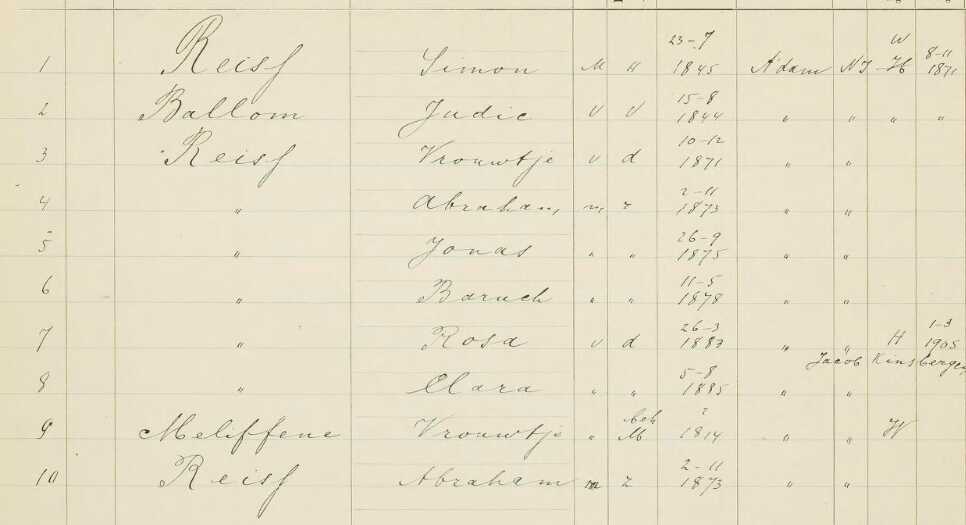 1 Reisf Simon M " 23-7 1845 A'dam NI W H 8-11 1871
2 Ballom Judic v V 15-8 1844 " " " "
3 Reisf Vrouwtje v d 10-12 1871 " "
4 " Abraham m z 2-11 1873 " "
5 " Jonas " " 26-9 1875 " "
6 " Baruch " " 11-5 1878 " "
7 " Rosa v d 26-3 1883 " " H 1-3 1905
Jacob Kinsbergen
8 " Clara " " 5-8 1885 " "
9 Meliffene Vrouwtje " beh M ? 1814 " " W
10 Reisf Abraham m z 2-11 1873 " "